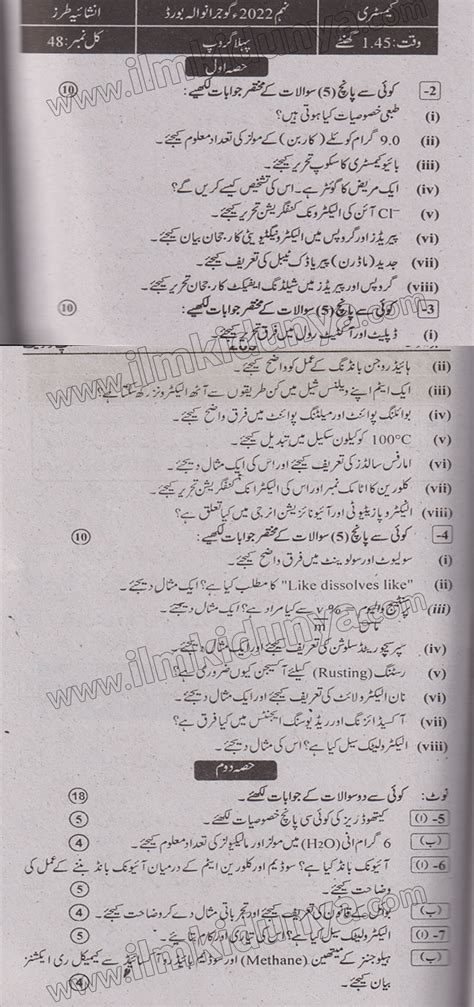 کیمسٹری نہم 2022ء گوجرانوالہ بورڈ انشائیہ طرز
وقت: 1.45 گھنٹے پہلا گروپ کل نمبر: 48
حصہ اول
-2 کوئی سے پانچ (5) سوالات کے مختصر جوابات لکھیے: 10
(i) طبعی خصوصیات کیا ہوتی ہیں؟
(ii) 9.0 گرام کوئلے (کاربن) کے مولز کی تعداد معلوم کیجئے۔
(iii) بائیو کیمسٹری کا سکوپ تحریر کیجئے۔
(iv) ایک مریض کا گوئٹر ہے۔ اس کی تشخیص کیسے کریں گے؟
(v) Cl⁻ آئن کی الیکٹرونک کنفگریشن تحریر کیجئے۔
(vi) پیریڈز اور گروپس میں الیکٹرونیگٹیویٹی کا رجحان بیان کیجئے۔
(vii) جدید (ماڈرن) پیریاڈک ٹیبل کی تعریف کیجئے۔
(viii) گروپس اور پیریڈز میں شیلڈنگ ایفیکٹ کا رجحان تحریر کیجئے۔
-3 کوئی سے پانچ (5) سوالات کے مختصر جوابات لکھیے: 10
(i) ڈپلیٹ اور آکٹیٹ رول میں فرق تحریر کیجئے۔
(ii) ہائیڈروجن بانڈنگ کے عمل کو واضح کیجئے۔
(iii) ایک ایٹم اپنے ویلنس شیل میں کن طریقوں سے آٹھ الیکٹرونز رکھ سکتا ہے؟
(iv) بوائلنگ پوائنٹ اور میلٹنگ پوائنٹ میں فرق واضح کیجئے۔
(v) 100°C کو کیلون سکیل میں تبدیل کیجئے۔
(vi) امارفس سالڈز کی تعریف کیجئے اور اس کی ایک مثال دیجئے۔
(vii) کلورین کا اٹامک نمبر اور اس کی الیکٹرانک کنفگریشن تحریر کیجئے۔
(viii) الیکٹرو پازیٹیویٹی اور آئیونائزیشن انرجی میں کیا تعلق ہے؟
-4 کوئی سے پانچ (5) سوالات کے مختصر جوابات لکھیے: 10
(i) سولیوٹ اور سولوینٹ میں فرق واضح کیجئے۔
(ii) "Like dissolves like" کا مطلب کیا ہے؟ ایک مثال دیجئے۔
(iii) % v/m سے کیا مراد ہے؟ ایک مثال دیجئے۔
(iv) سپر سیچوریٹڈ سلوشن کی تعریف کیجئے اور ایک مثال دیجئے۔
(v) رسٹنگ (Rusting) کیلئے آکسیجن کیوں ضروری ہے؟
(vi) نان الیکٹرولائٹ کی تعریف کیجئے اور ایک مثال دیجئے۔
(vii) آکسیڈائزنگ اور ریڈیوسنگ ایجنٹس میں کیا فرق ہے؟
(viii) الیکٹرولیٹک سیل کیا ہے؟ اس کی مثال دیجئے۔
حصہ دوم
نوٹ: کوئی سے دو سوالات کے جوابات لکھئے۔ 18
-5 (ا) کیتھوڈ ریز کی کوئی سی پانچ خصوصیات لکھئے۔ 5
(ب) 6 گرام پانی (H₂O) میں مولز اور مالیکیولز کی تعداد معلوم کیجئے۔ 4
-6 (ا) آئیونک بانڈ کیا ہے؟ سوڈیم اور کلورین ایٹم کے درمیان آئیونک بانڈ بننے کے عمل کی
وضاحت کیجئے۔ 5
(ب) بوائل کے قانون کی تعریف کیجئے اور تجرباتی مثال دے کر وضاحت کیجئے۔ 4
-7 (ا) الیکٹرولیٹک سیل کیا ہے؟ اس کی تیاری اور کام بتائیے۔ 5
(ب) ہیلوجنز کے میتھین (Methane) اور سوڈیم ہائیڈرو آکسائیڈ سے کیمیکل ری ایکشنز
بیان کیجئے۔ 4
www.ilmkidunya.com